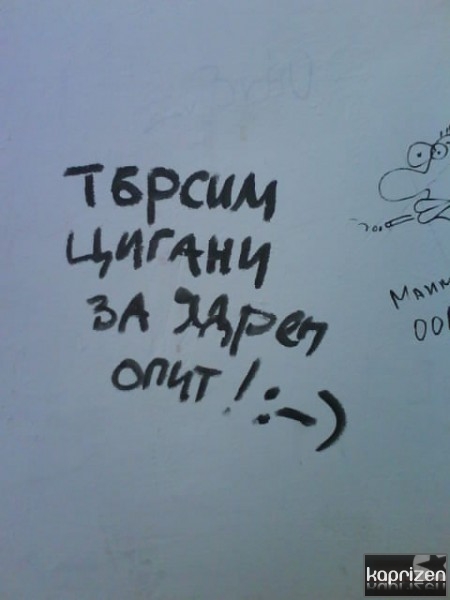 ТЪРСИМ
ЦИГАНИ
ЗА ЯДРЕН
ОПИТ! :-)
kaprizen